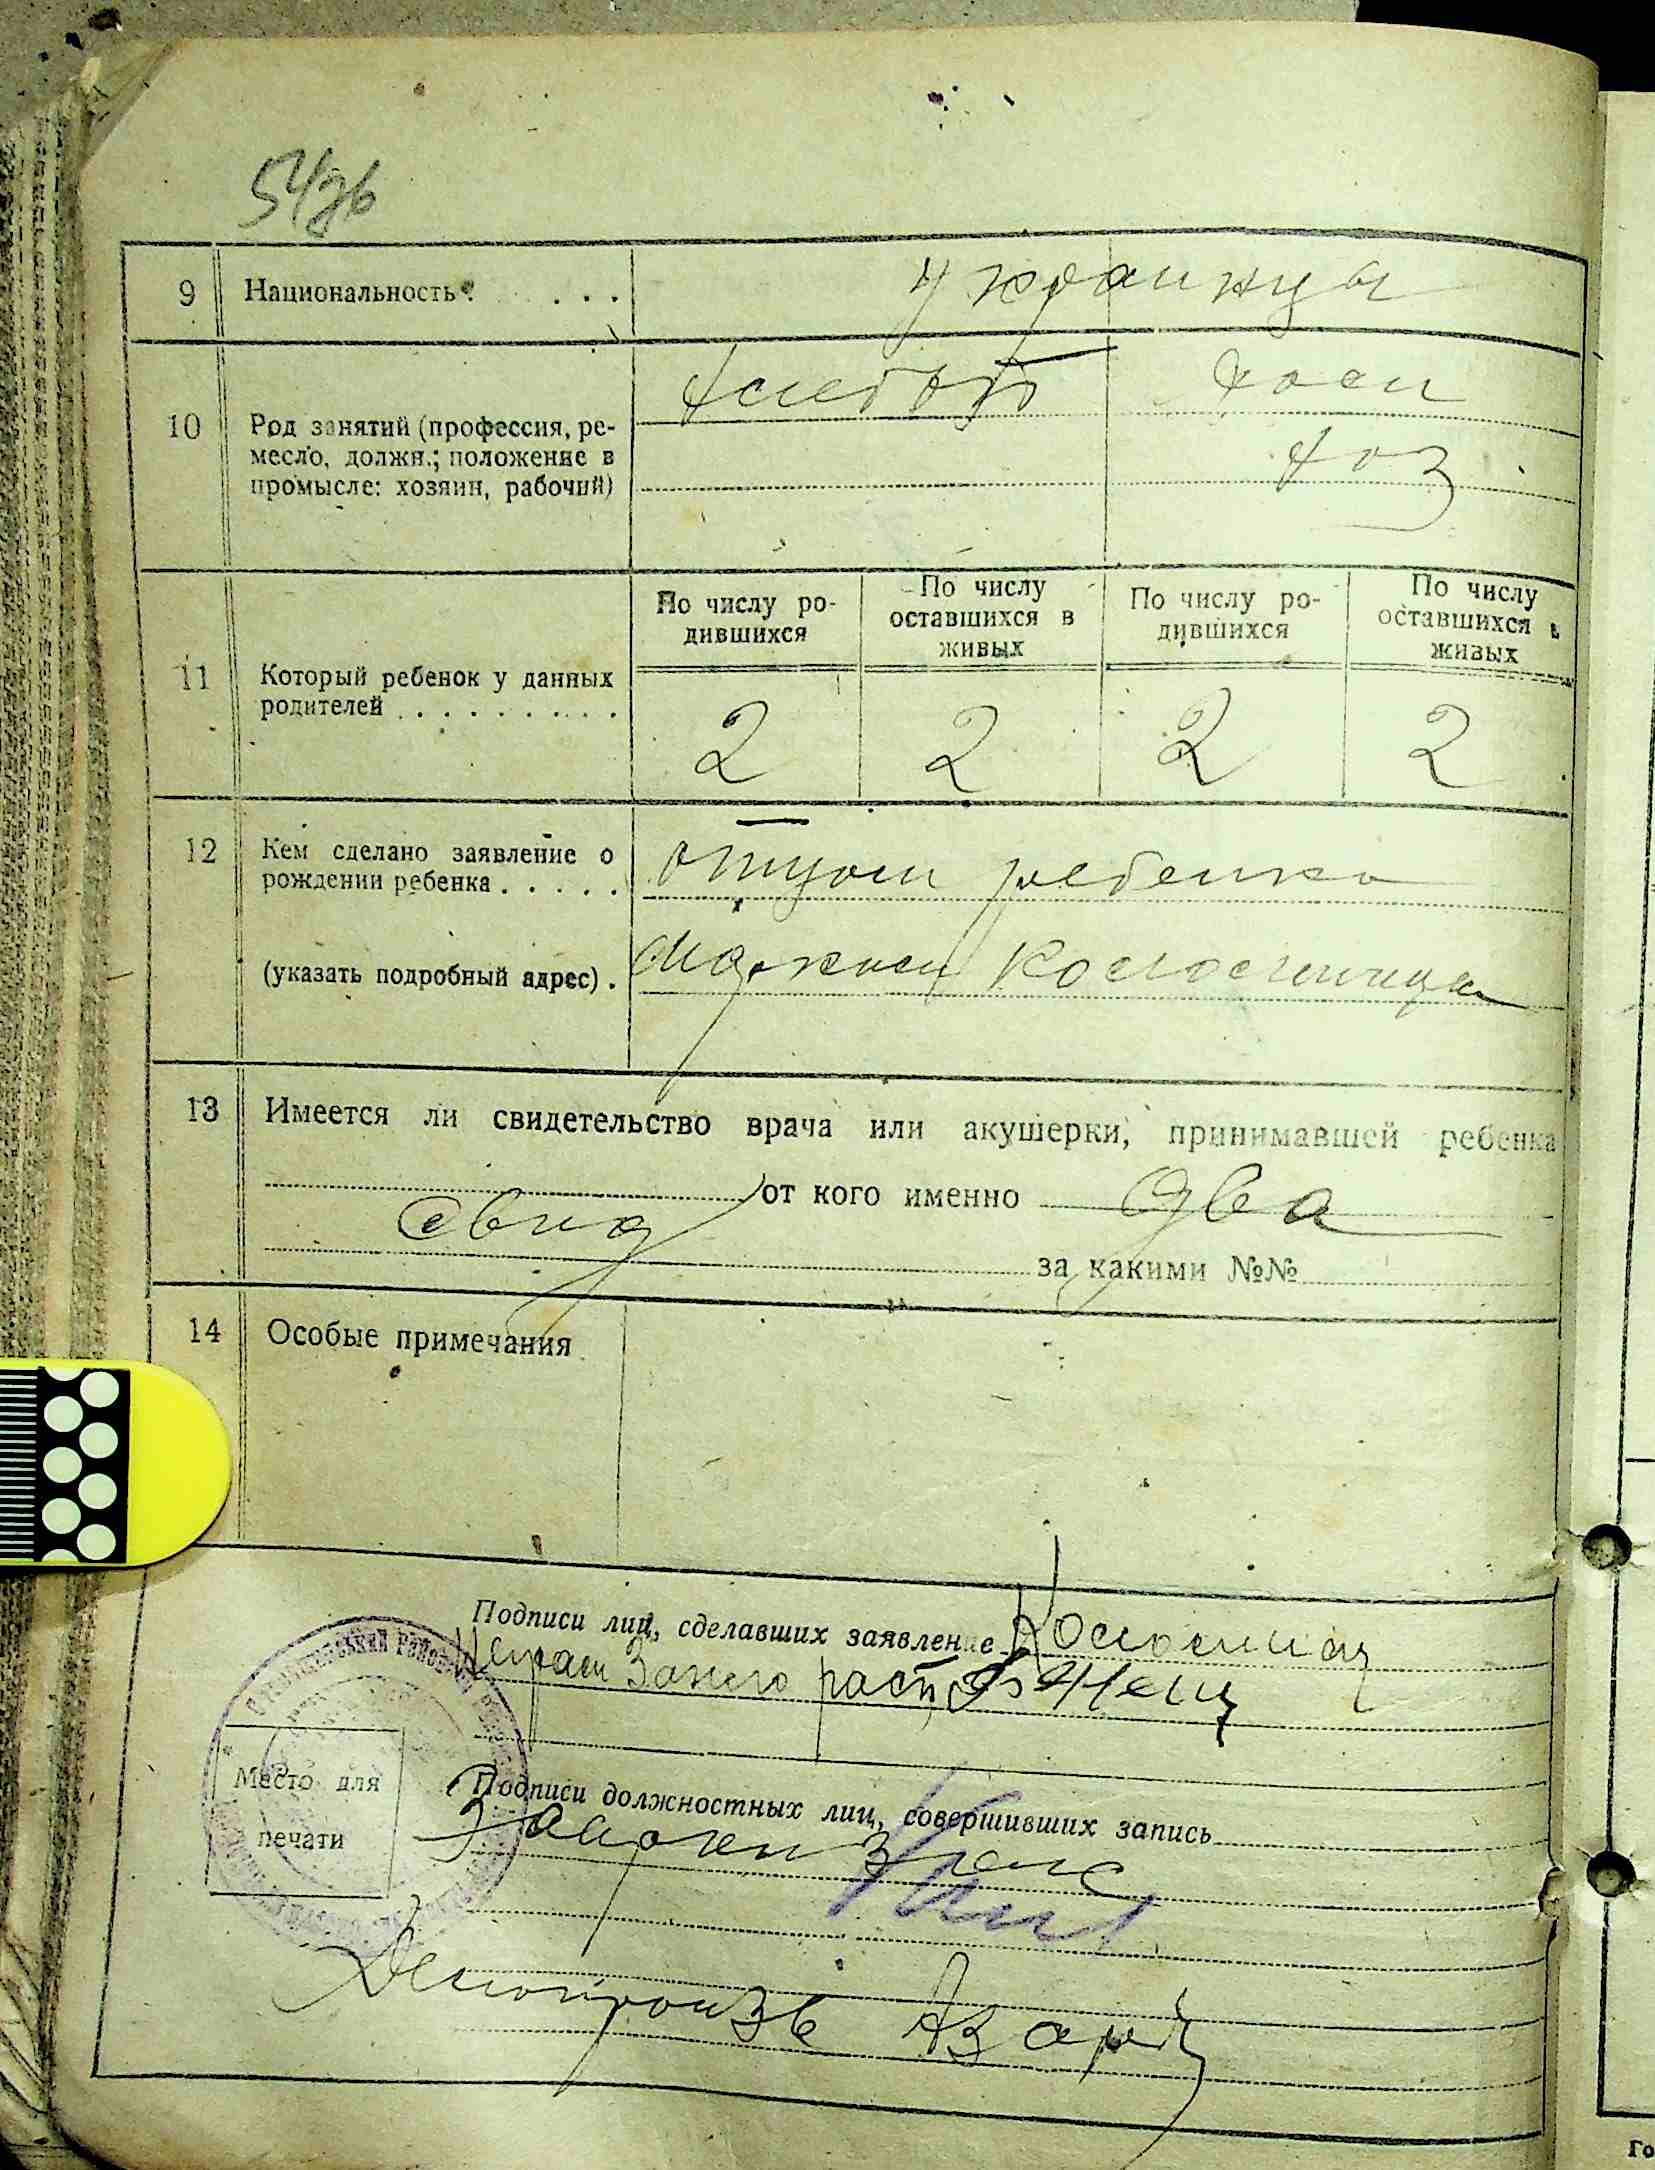 54
9 Национальность . . . .
украинцы
10 Род занятий (профессия, ре-
месло, должн.; положение в
промысле: хозяин, рабочий)
хлебоб
дом
хоз
11 Который ребенок у данных
родителей . . . . . . . . . .
По числу ро-
дившихся
По числу
оставшихся в
живых
По числу ро-
дившихся
По числу
оставшихся в
живых
2 2 2 2
12 Кем сделано заявление о
рождении ребенка . . . . .
отцом ребенка
(указать подробный адрес) .
13 Имеется ли свидетельство врача или акушерки, принимавшей ребенка
свид от кого именно два
за какими №№
14 Особые примечания
Подписи лиц, сделавших заявление
неграм за него расп
Место для
печати
Подписи должностных лиц, совершивших запись
Делопроизв